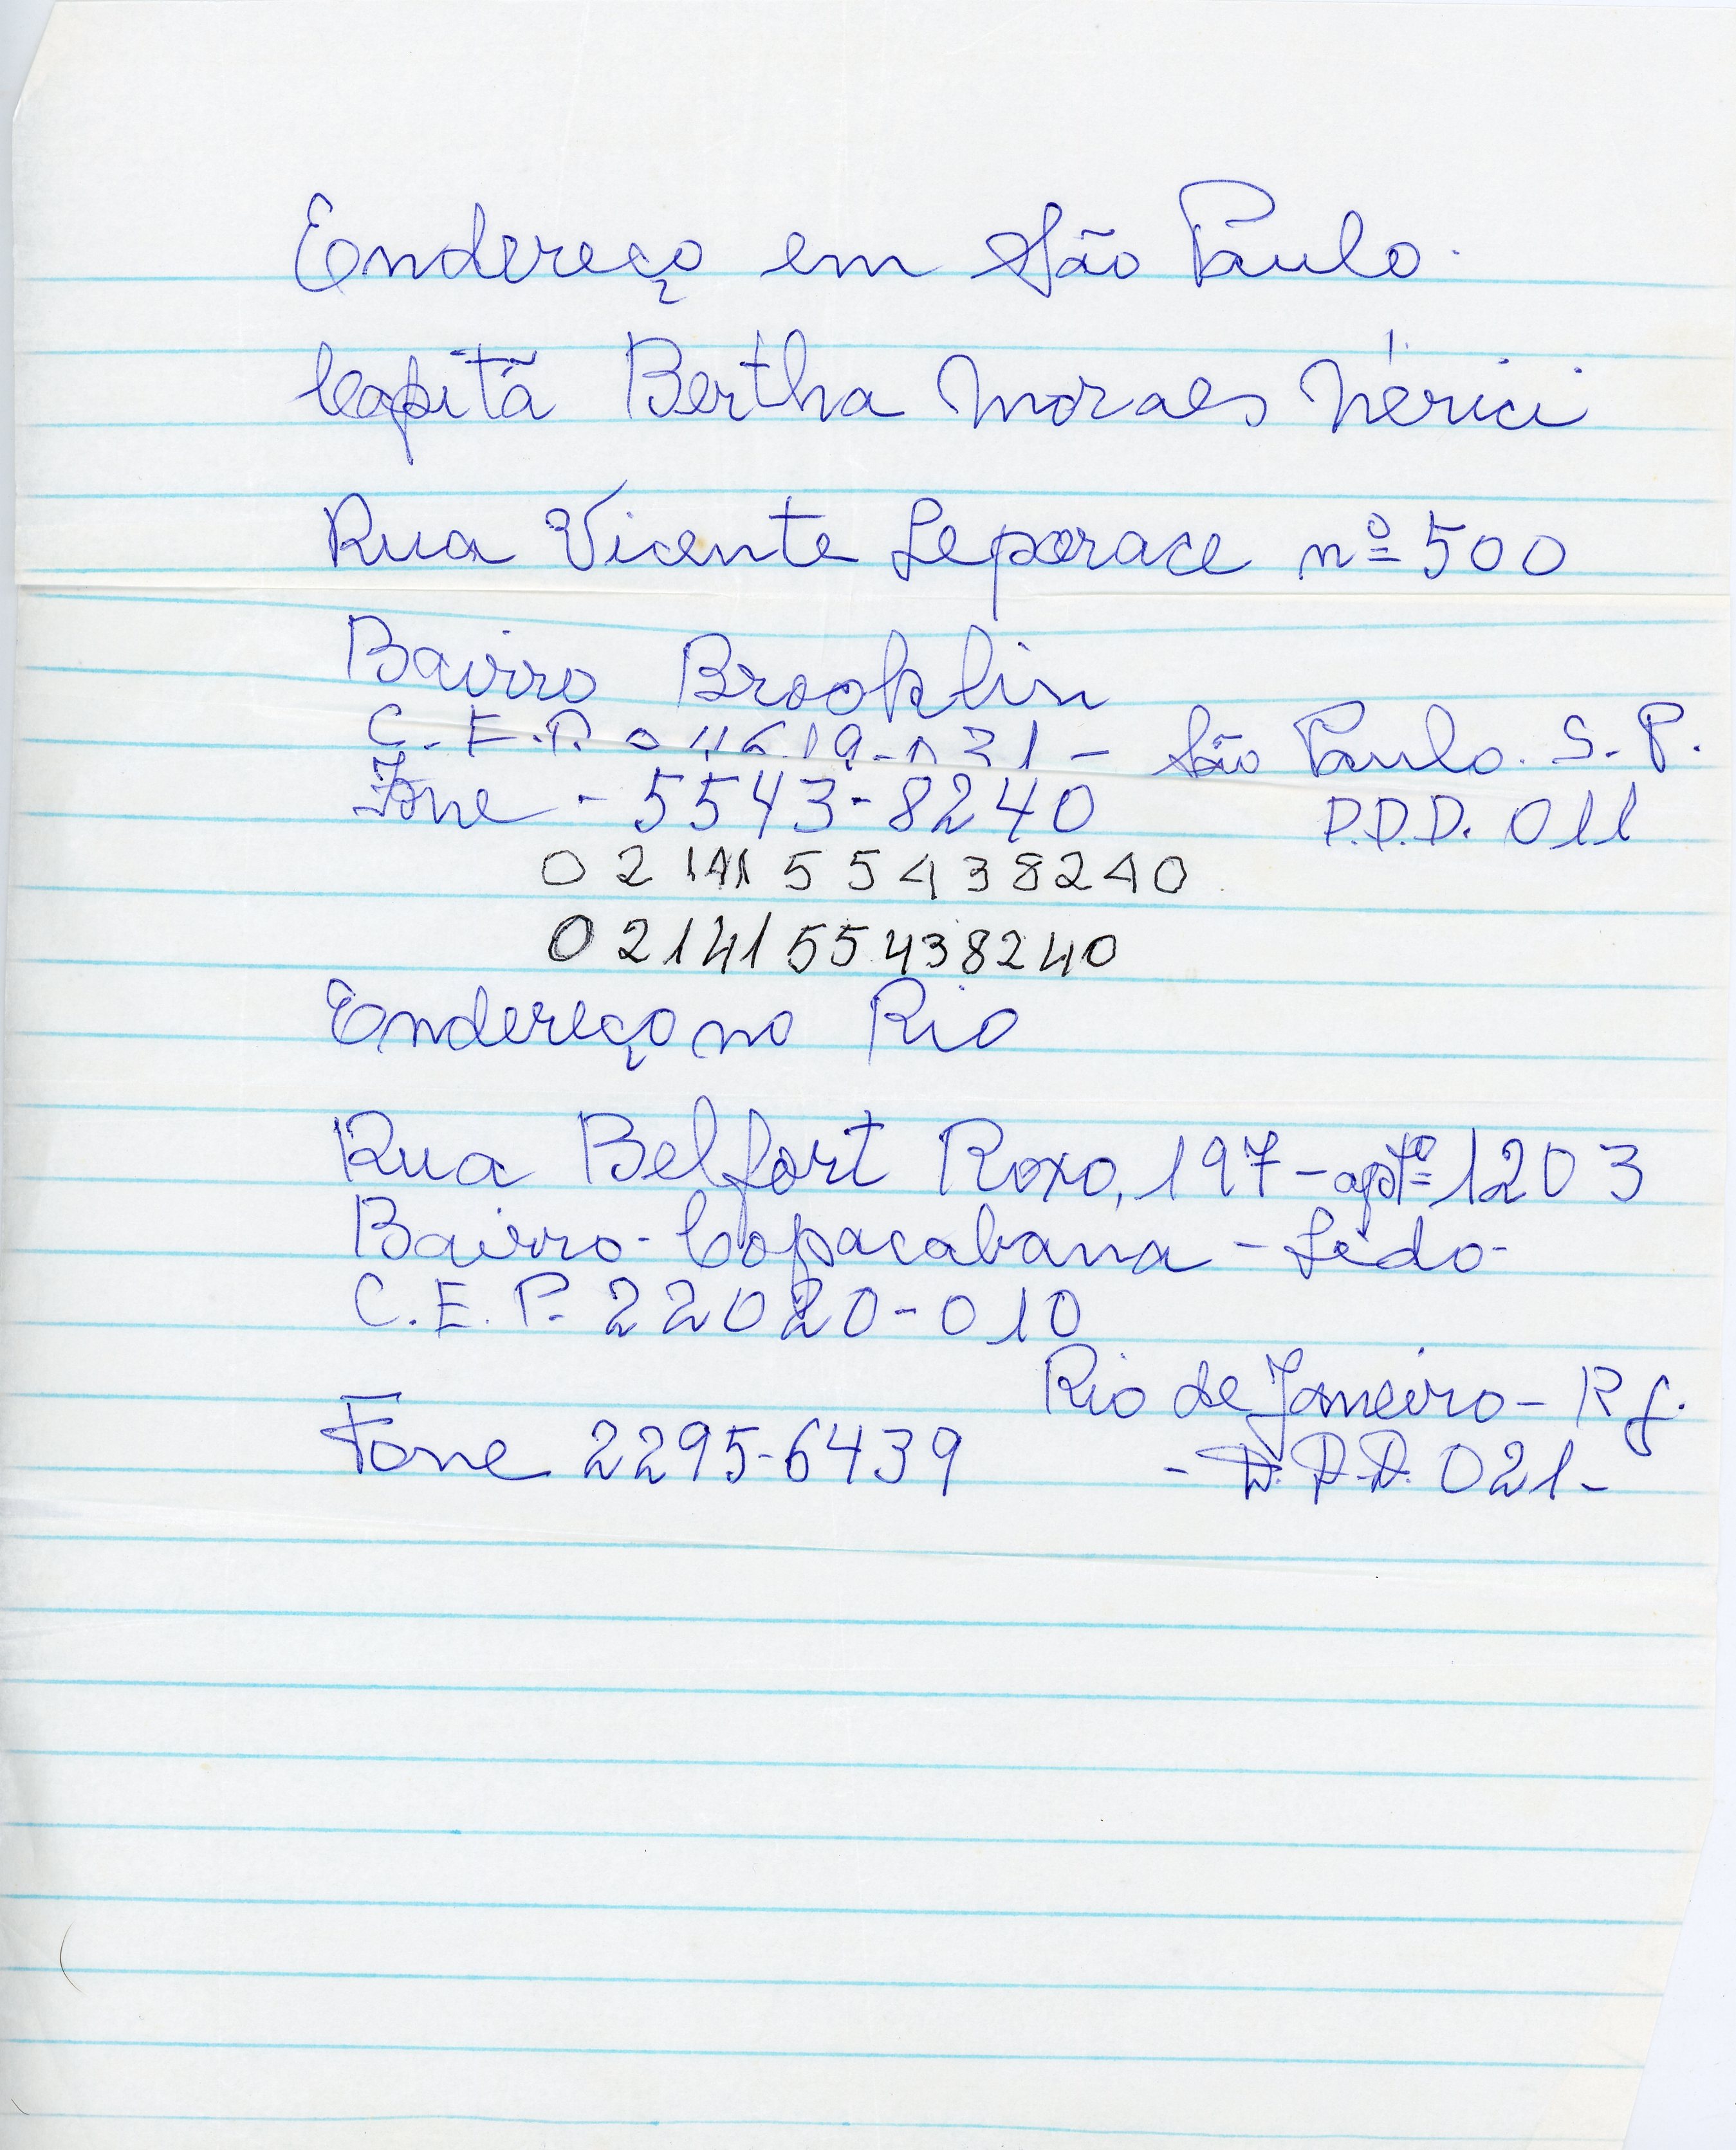 Endereço em São Paulo.
Capitã Bertha Moraes Nérici
Rua Vicente Leporace nº 500
Bairro Brooklin
C.E.P. 04619-031 - São Paulo. S.P.
Fone - 5543-8240 D.D.D. 011
0 2 1 41 5 5 4 3 8 2 4 0
0 2 1 41 55 438240
Endereço no Rio
Rua Belfort Roxo, 197 - aptº 1203
Bairro - Copacabana - Lido -
C.E.P. 22020-010
Rio de Janeiro - RJ.
Fone 2295-6439 - D.D.D. 021 -